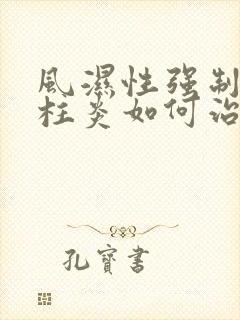 風濕性强制
柱炎如何治
孔寶書